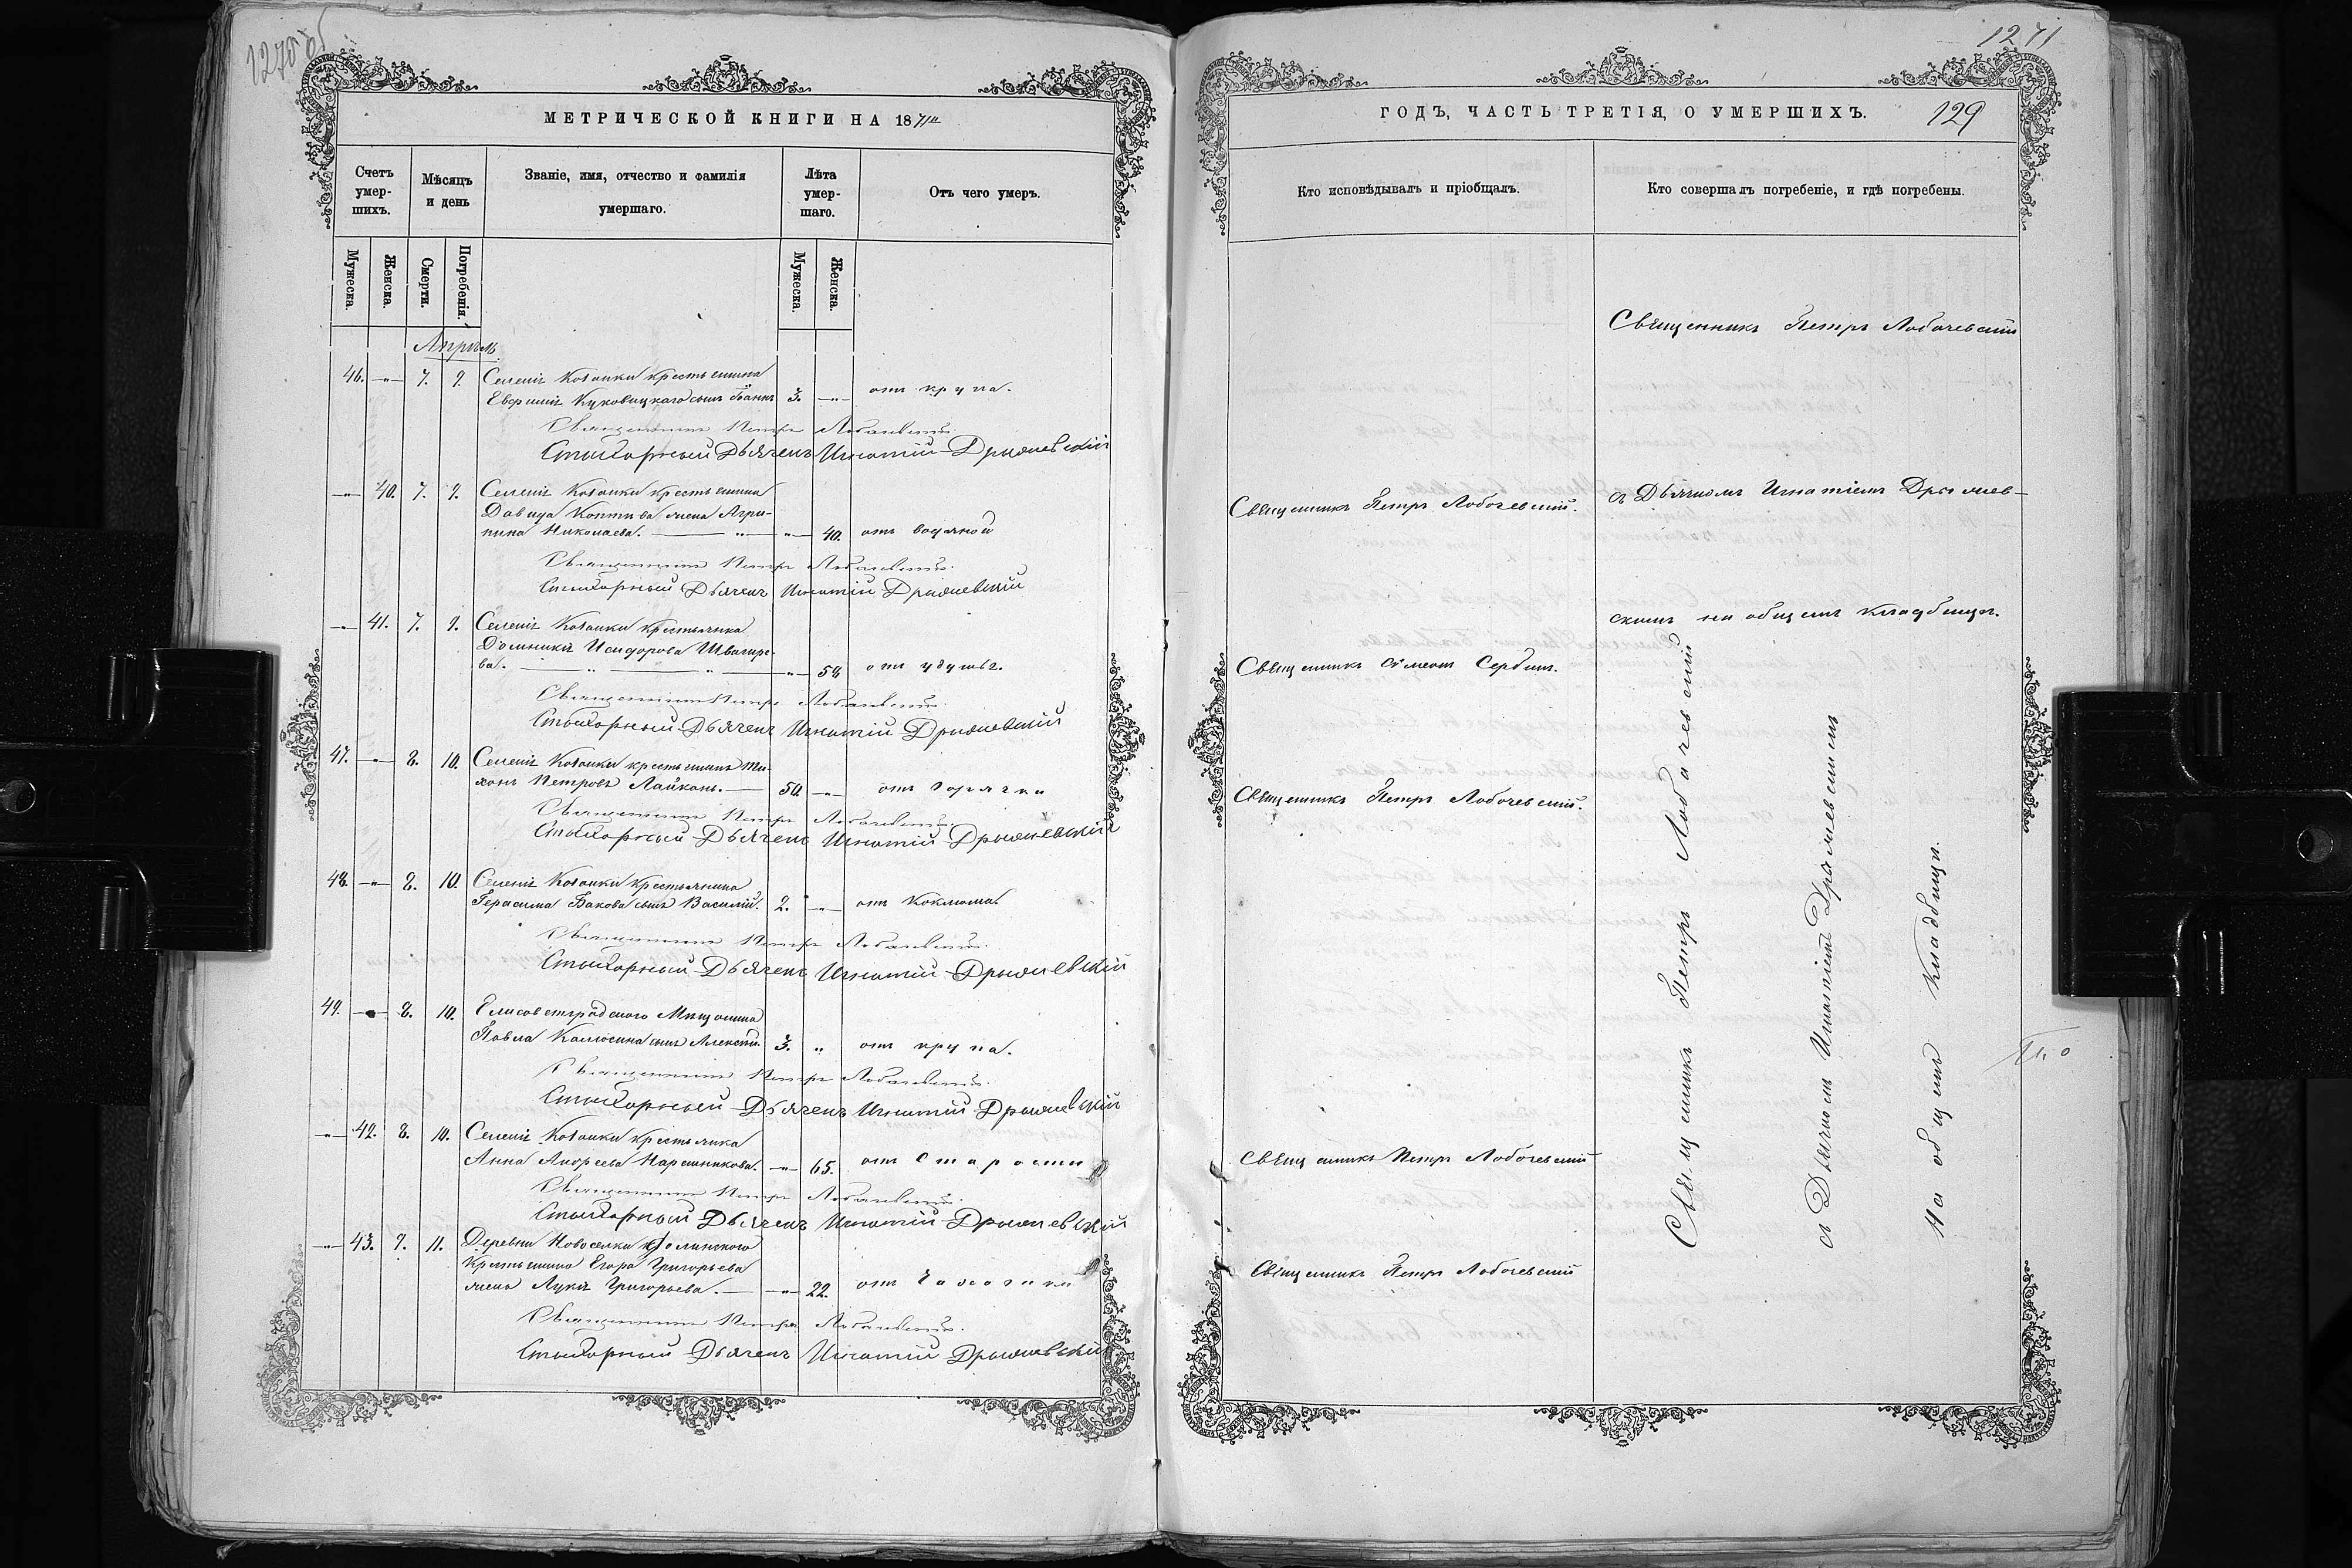 1270
МЕТРИЧЕСКОЙ КНИГИ НА 1871й
Счетъ умершихъ.
Мѣсяцъ и день
Званіе, имя, отчество и фамилія умершаго.
Лѣта умершаго.
Отъ чего умеръ.
Мужеска.
Женска.
Смерти.
Погребенія.
Мужеска.
Женска.
Апрѣль
46. —„— 7. 9. Селенія Козанки крестьянина
Евфимія Куковицкаго сынъ Іоаннъ 3. —„— отъ крупа.
Священникъ Петръ Лобачевскій.
Стихарный Дьячекъ Игнатій Дрымевскій
—„— 40. 7. 9. Селенія Козанки крестьянина
Давида Коптива жена Агри-
пина Николаева. — „ — —„— 40. отъ водяной
Священникъ Петръ Лобачевскій.
Стихарный Дьячекъ Игнатій Дрымевскій
—„— 41. 7. 9. Селенія Козанки крестьянка
Домникія Исидорова
ва. — „ — „ — —„— 58 отъ удушья.
Священникъ Петръ Лобачевскій.
Стихарный Дьячекъ Игнатій Дрымевскій
47. —„— 8. 10. Селенія Козанки крестьянинъ Ти-
хонъ Петровъ Лайконь. — 50. —„— отъ горячки
Священникъ Петръ Лобачевскій.
Стихарный Дьячекъ Игнатій Дрымевскій
48. —„— 8. 10. Селенія Козанки крестьянина
Герасима Бакова сынъ Василій. 2. —„— отъ коклюша.
Священникъ Петръ Лобачевскій.
Стихарный Дьячекъ Игнатій Дрымевскій
49. —„— 8. 10. Елисоветградского Мещанина
Павла Калюсина сынъ Алексѣй. 3. „ отъ крупа.
Священникъ Петръ Лобачевскій.
Стихарный Дьячекъ Игнатій Дрымевскій
—„— 42. 8. 10. Селенія Козанки крестьянка
Анна Андреева —„— 65. отъ старости
Священникъ Петръ Лобачевскій.
Стихарный Дьячекъ Игнатій Дрымевскій
—„— 43. 9. 11. Деревни Новоселки
Крестьянина Егора Григорьева
жена Лукія Григорьева. — —„— 22. отъ чахотки
Священникъ Петръ Лобачевскій.
Стихарный Дьячекъ Игнатій Дрымевскій
1271
ГОДЪ, ЧАСТЬ ТРЕТІЯ, О УМЕРШИХЪ.
129
Кто исповѣдывалъ и пріобщалъ.
Кто совершалъ погребеніе, и гдѣ погребены.
Священникъ Петръ Лобачевскій
Священникъ Петръ Лобачевскій.
съ Дьячкомъ Игнатіемъ Дрымев-
скимъ на общемъ кладбищѣ.
Священникъ Симеонъ Сербинъ.
Священникъ Петръ Лобачевскій.
Священникъ Петръ Лобачевскій
Священникъ Петръ Лобачевскій
Священникъ Петръ Лобачевскій
съ Дьячкомъ Игнатіемъ Дрымевскимъ
на общемъ кладбищѣ.